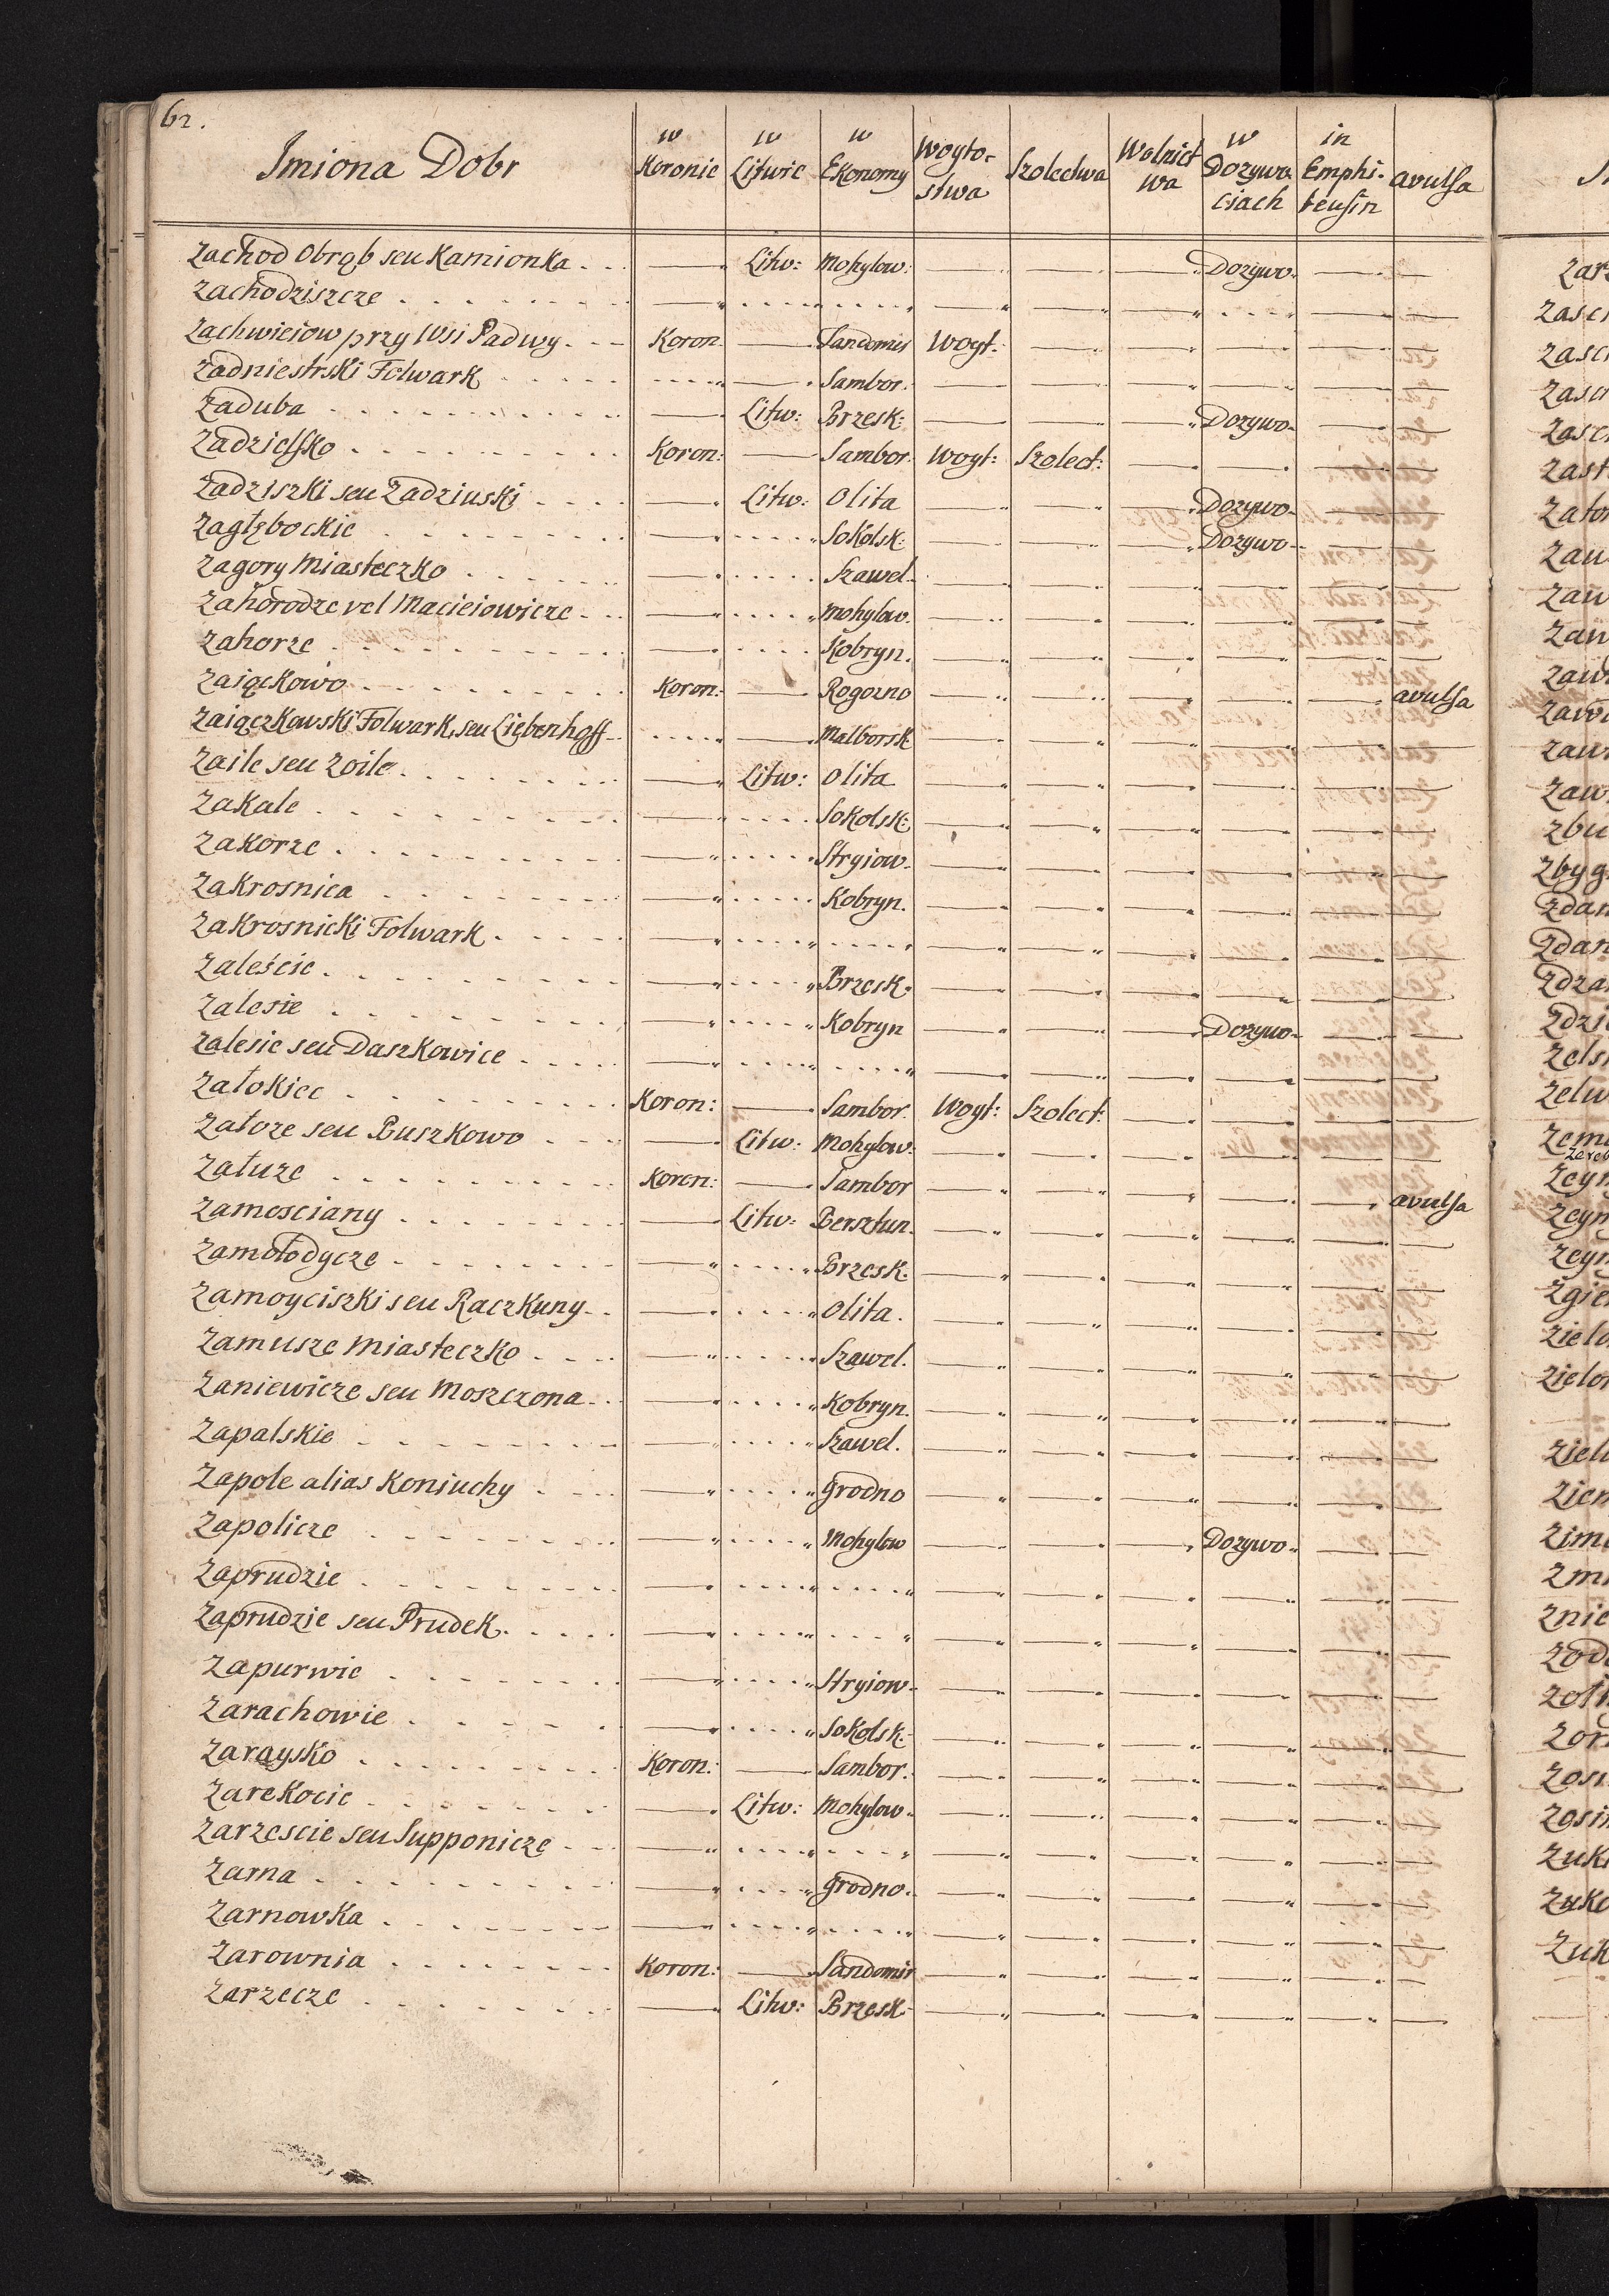 62.
Imiona Dobr | w Koronie | w Litwie | w Ekonomy | Woytostwa | Szolectwa | Wolnictwa | w Dozywociach | in Emphiteusin | avulsa
Zachod Obrąb seu Kamionka | — | Litw: | Mohylow: | — | — | — | Dozywo. | — | —
Zachodziszcze
Zachwieiow przy Wsi Padwy | Koron. | — | Sandomir | Woyt: | — | — | — | — | —
Zadniestrski Folwark | | — | Sambor. | — | — | — | — | — | —
Zaduba | — | Litw: | Brzesk: | — | — | — | Dozywo. | — | —
Zadzielsko | Koron: | — | Sambor. | Woyt: | Szolect: | — | — | — | —
Zadziszki seu Zadziuski | — | Litw: | Olita | — | — | — | Dozywo. | — | —
Zagłębockie | — | | Sokolsk: | — | — | — | Dozywo. | — | —
Zagory Miasteczko | — | | Szawel. | — | — | — | — | — | —
Zahorodze vel Macieiowicze | — | | Mohylow. | — | — | — | — | — | —
Zahorze | — | | Kobryn. | — | — | — | — | — | —
Zaiąckowo | Koron: | — | Rogozno | — | — | — | — | — | avulsa
Zaiączkowski Folwark, seu Liębenhoff | | — | Malborsk | — | — | — | — | — | —
Zaile seu Zoile | — | Litw: | Olita | — | — | — | — | — | —
Zakale | — | | Sokolsk: | — | — | — | — | — | —
Zakorze | — | | Stryiow. | — | — | — | — | — | —
Zakrosnica | — | | Kobryn. | — | — | — | — | — | —
Zakrosnicki Folwark
Zaleście | — | | Brzesk. | — | — | — | — | — | —
Zalesie | — | | Kobryn | — | — | — | Dozywo. | — | —
Zalesie seu Daszkowice
Załokiec | Koron: | — | Sambor. | Woyt: | Szolect: | — | — | — | —
Załoze seu Buszkowo | — | Litw: | Mohylow: | — | — | — | — | — | —
Załuze | Koron: | — | Sambor | — | — | — | — | — | avulsa
Zamosciany | — | Litw: | Bersztun. | — | — | — | — | — | —
Zamołodycze | — | | Brzesk: | — | — | — | — | — | —
Zamoyciszki seu Raczkuny | — | | Olita. | — | — | — | — | — | —
Zamusze Miasteczko | — | | Szawel. | — | — | — | — | — | —
Zaniewicze seu Moszczona | — | | Kobryn. | — | — | — | — | — | —
Zapalskie | — | | Szawel. | — | — | — | — | — | —
Zapole alias Koniuchy | — | | Grodno | — | — | — | — | — | —
Zapolicze | — | | Mohylow | — | — | — | Dozywo. | — | —
Zaprudzie
Zaprudzie seu Prudek
Zapurwie | — | | Stryiow. | — | — | — | — | — | —
Zarachowie | — | | Sokolsk: | — | — | — | — | — | —
Zaraysko | Koron: | — | Sambor. | — | — | — | — | — | —
Zarekocie | — | Litw: | Mohylow. | — | — | — | — | — | —
Zarzescie seu Supponicze
Zarna | — | | Grodno. | — | — | — | — | — | —
Zarnowka
Zarownia | Koron: | — | Sandomir | — | — | — | — | — | —
Zarzecze | — | Litw: | Brzesk. | — | — | — | — | — | —